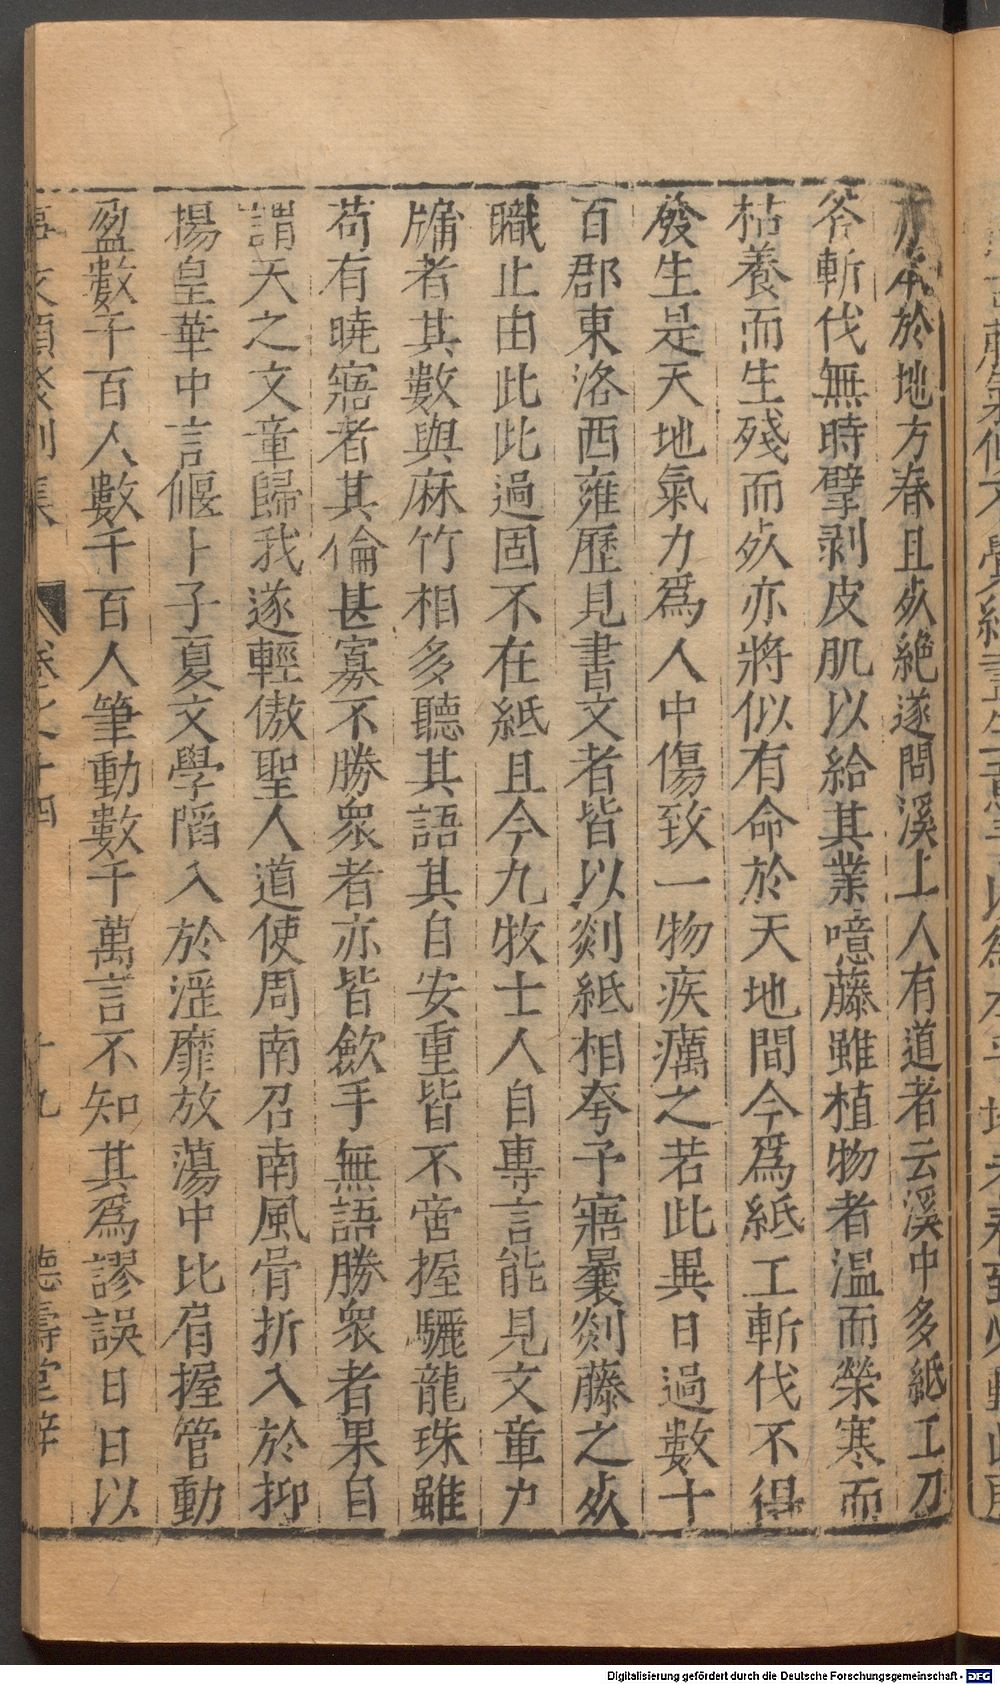 於地方春且死絶遂問溪上人有道者云溪中多紙工刀
斧斬伐無時擘剥皮肌以給其業噫藤雖植物者温而榮寒而
枯養而生殘而死亦將似有命於天地間今爲紙工斬伐不得
發生是天地氣力爲人中傷致一物疾癘之若此異日過數十
百郡東洛西雍歷見書文者皆以剡紙相夸予寤曩剡藤之死
職止由此此過固不在紙且今九牧士人自專言能見文章力
牖者其數與麻竹相多聽其語其自安重皆不啻握驪龍珠雖
苟有曉寤者其倫甚寡不勝衆者亦皆歛手無語勝衆者果自
謂天之文章歸我遂輕傲聖人道使周南召南風骨折入於抑
揚皇華中言偃卜子夏文學陷入於淫靡放蕩中比肩握管動
盈數千百人數千百人筆動數千萬言不知其爲謬誤日日以
事文類聚别集 卷之十四 十九 德壽堂梓
Digitalisierung gefördert durch die Deutsche Forschungsgemeinschaft - DFG